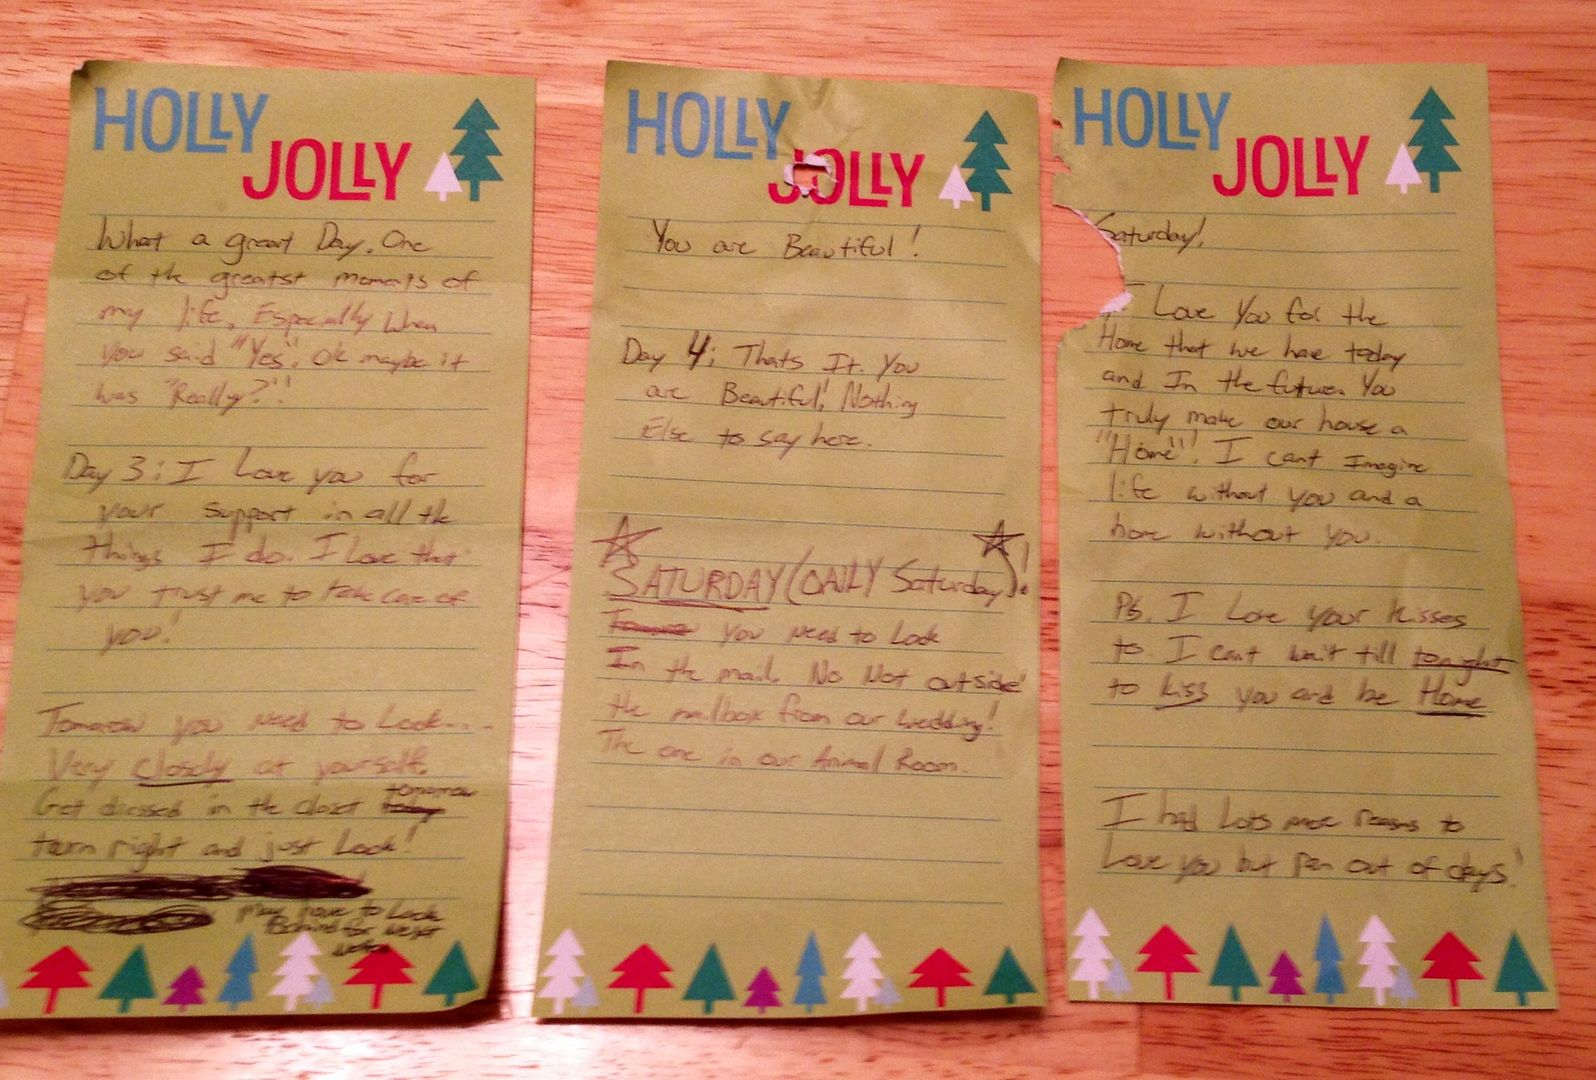 HOLLY
JOLLY
What a great Day. One
of the greatst moments of
my life, Especially when
you said "Yes". Ok maybe it
was "Really?"!
Day 3: I Love you for
your support in all the
things I do. I Love that
you trust me to take care of
you!
Tomorrow you need to Look...
Very closely at yourself.
Get dressed in the closet tomorrow
turn right and just Look!
may have to Look
Behind for Next
Note
HOLLY
JOLLY
You are Beautiful!
Day 4: Thats It. You
are Beautiful! Nothing
Else to say here.
SATURDAY (ONLY Saturday)!
you need to Look
In the mail. No Not outside
the mailbox from our wedding!
The one in our Animal Room.
HOLLY
JOLLY
Saturday!
I Love You for the
Home that we have today
and In the future. You
truly make our house a
"Home"! I cant Imagine
life without you and a
home without you.
PS. I Love your kisses
to. I cant wait till tonight
to kiss you and be Home
I had Lots more reasons to
Love you but ran out of days!